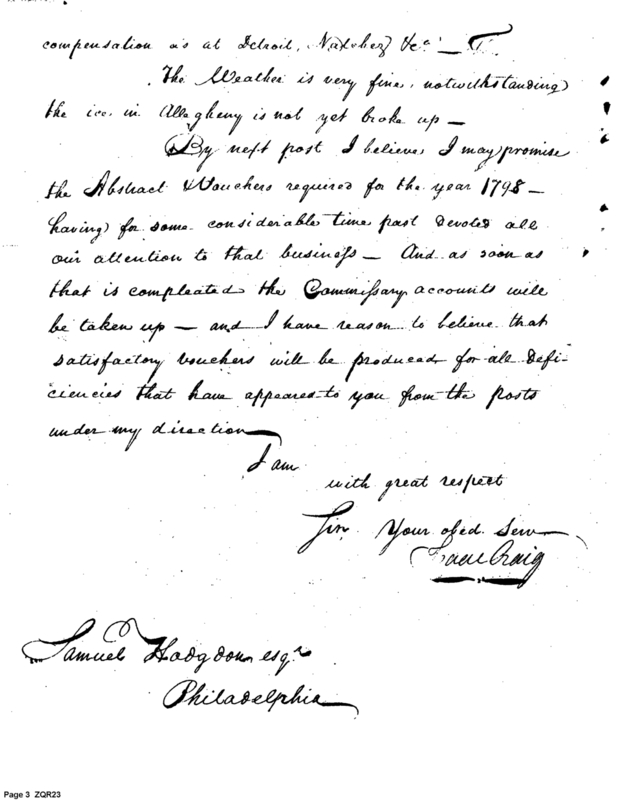 compensation as at Detroit, Natchez &c.
The Weather is very fine, notwithstanding
the ice in Allegheny is not yet broke up —
By next post I believe I may promise
the Abstract & Vouchers required for the year 1798 —
having for some considerable time past devoted all
our attention to that business — And as soon as
that is compleated the Commissary accounts will
be taken up — and I have reason to believe that
satisfactory vouchers will be produced for all Defi-
ciencies that have appeared to you from the posts
under my direction —
I am
with great respect
Sir Your obed. Serv
Isaac Craig
Samuel Hodgdon esqr
Philadelphia
Page 3 ZQR23